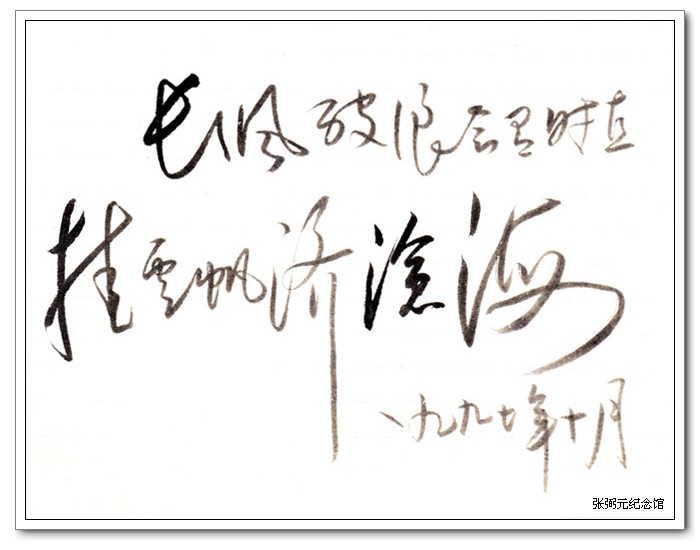 长风破浪会有时直
挂云帆济沧海
一九九七年十月
张弼元纪念馆